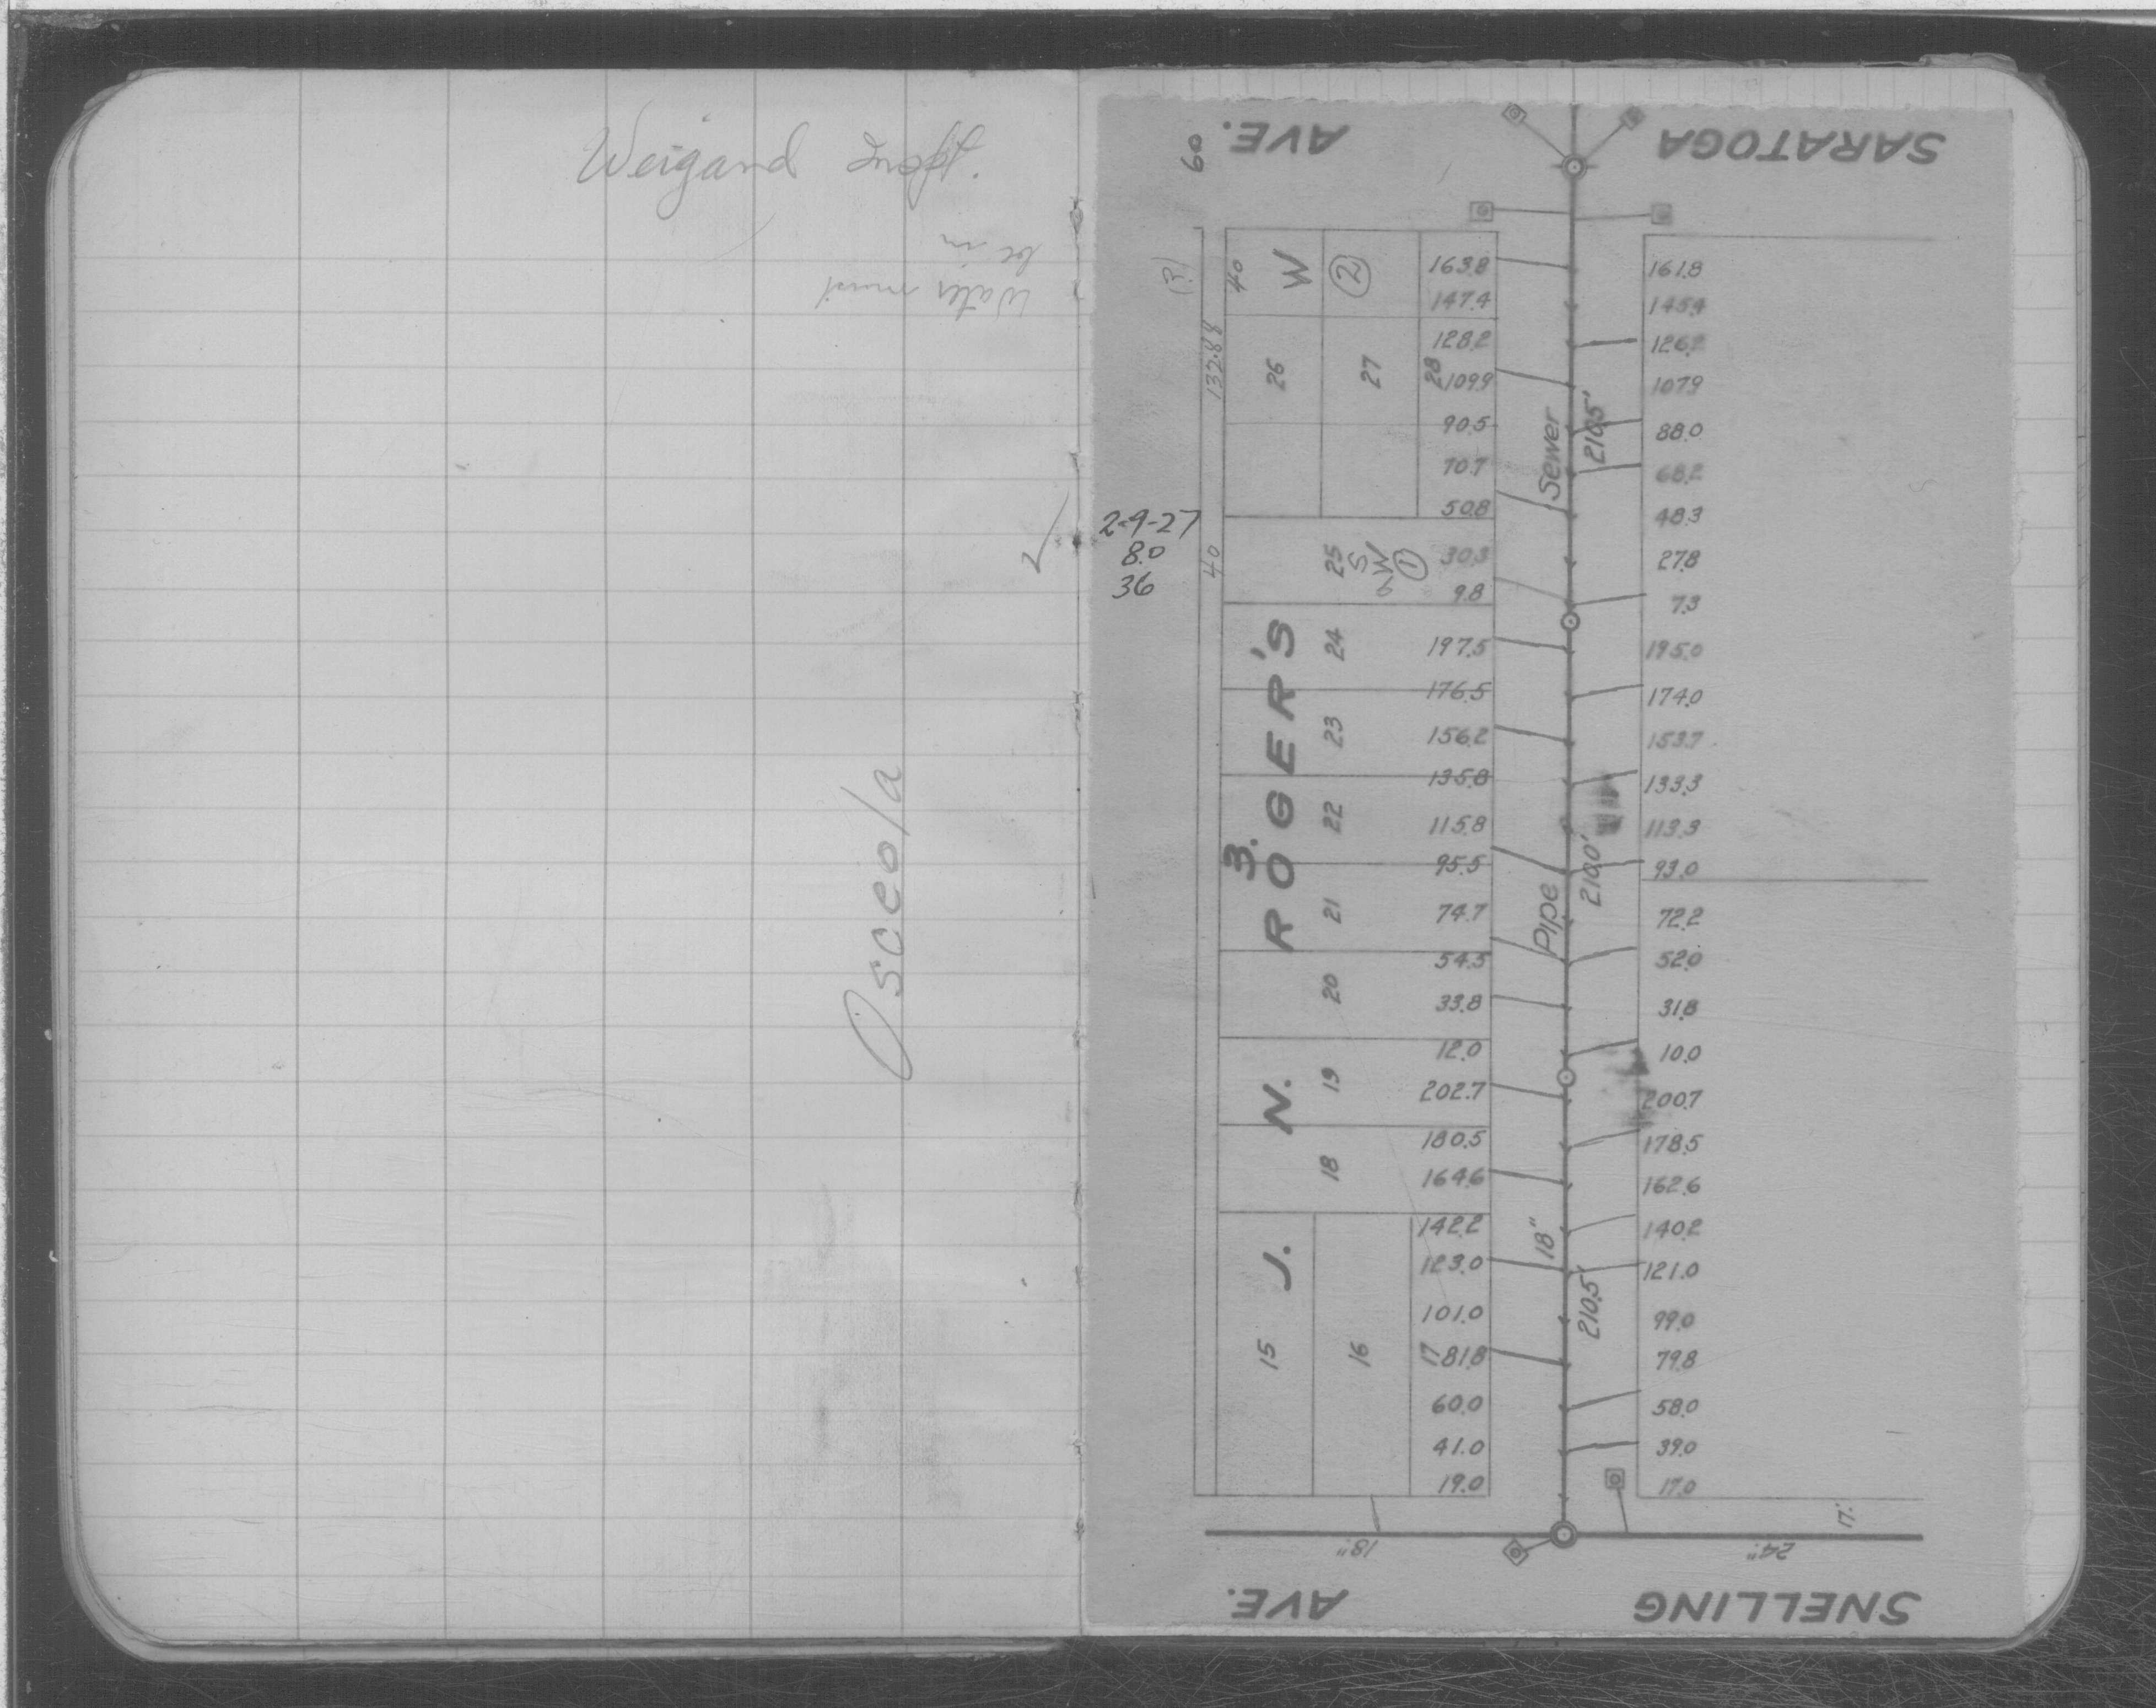 Weigand Inspt.
Water must
be in
Osceola
SARATOGA AVE.
60
(3)
132.88
40
40
2-9-27
8.0
36
W
2
26
27
28
25
S
W
1
24
23
22
21
20
19
18
15
16
17
J. N. ROGER'S
3.
163.8
147.4
128.2
109.9
90.5
70.7
50.8
30.3
9.8
197.5
176.5
156.2
135.8
115.8
95.5
74.7
54.5
33.8
12.0
202.7
180.5
164.6
142.2
123.0
101.0
81.8
60.0
41.0
19.0
18" Pipe Sewer
210.5'
210.0'
210.5'
161.8
145.4
126.2
107.9
88.0
68.2
48.3
27.8
7.3
195.0
174.0
153.7
133.3
113.3
93.0
72.2
52.0
31.8
10.0
200.7
178.5
162.6
140.2
121.0
99.0
79.8
58.0
39.0
17.0
17.
18"
24"
SNELLING AVE.